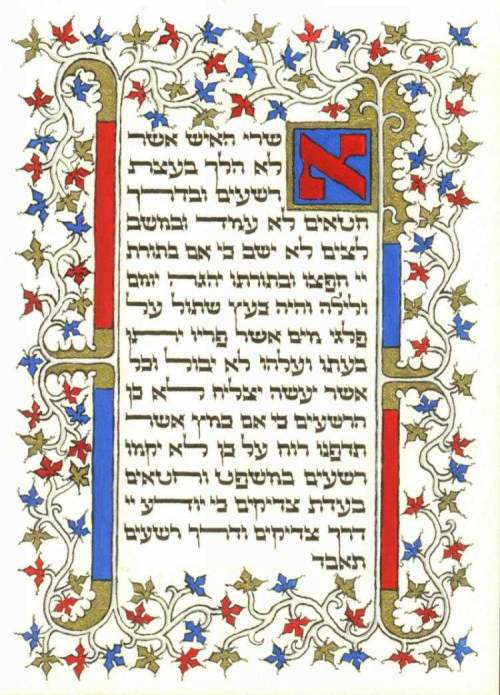 אשרי האיש אשר
לא הלך בעצת
רשעים ובדרך
חטאים לא עמד ובמשב
לצים לא ישב כי אם בתורת
יי חפצו ובתורתו יהגה יומם
ולילה והיה כעץ שתול על
פלגי מים אשר פריו יתן
בעתו ועלהו לא יבול וכל
אשר יעשה יצליח לא כן
הרשעים כי אם כמץ אשר
תדפנו רוח על כן לא יקמו
רשעים במשפט וחטאים
בעדת צדיקים כי יודע יי
דרך צדיקים ודרך רשעים
תאבד